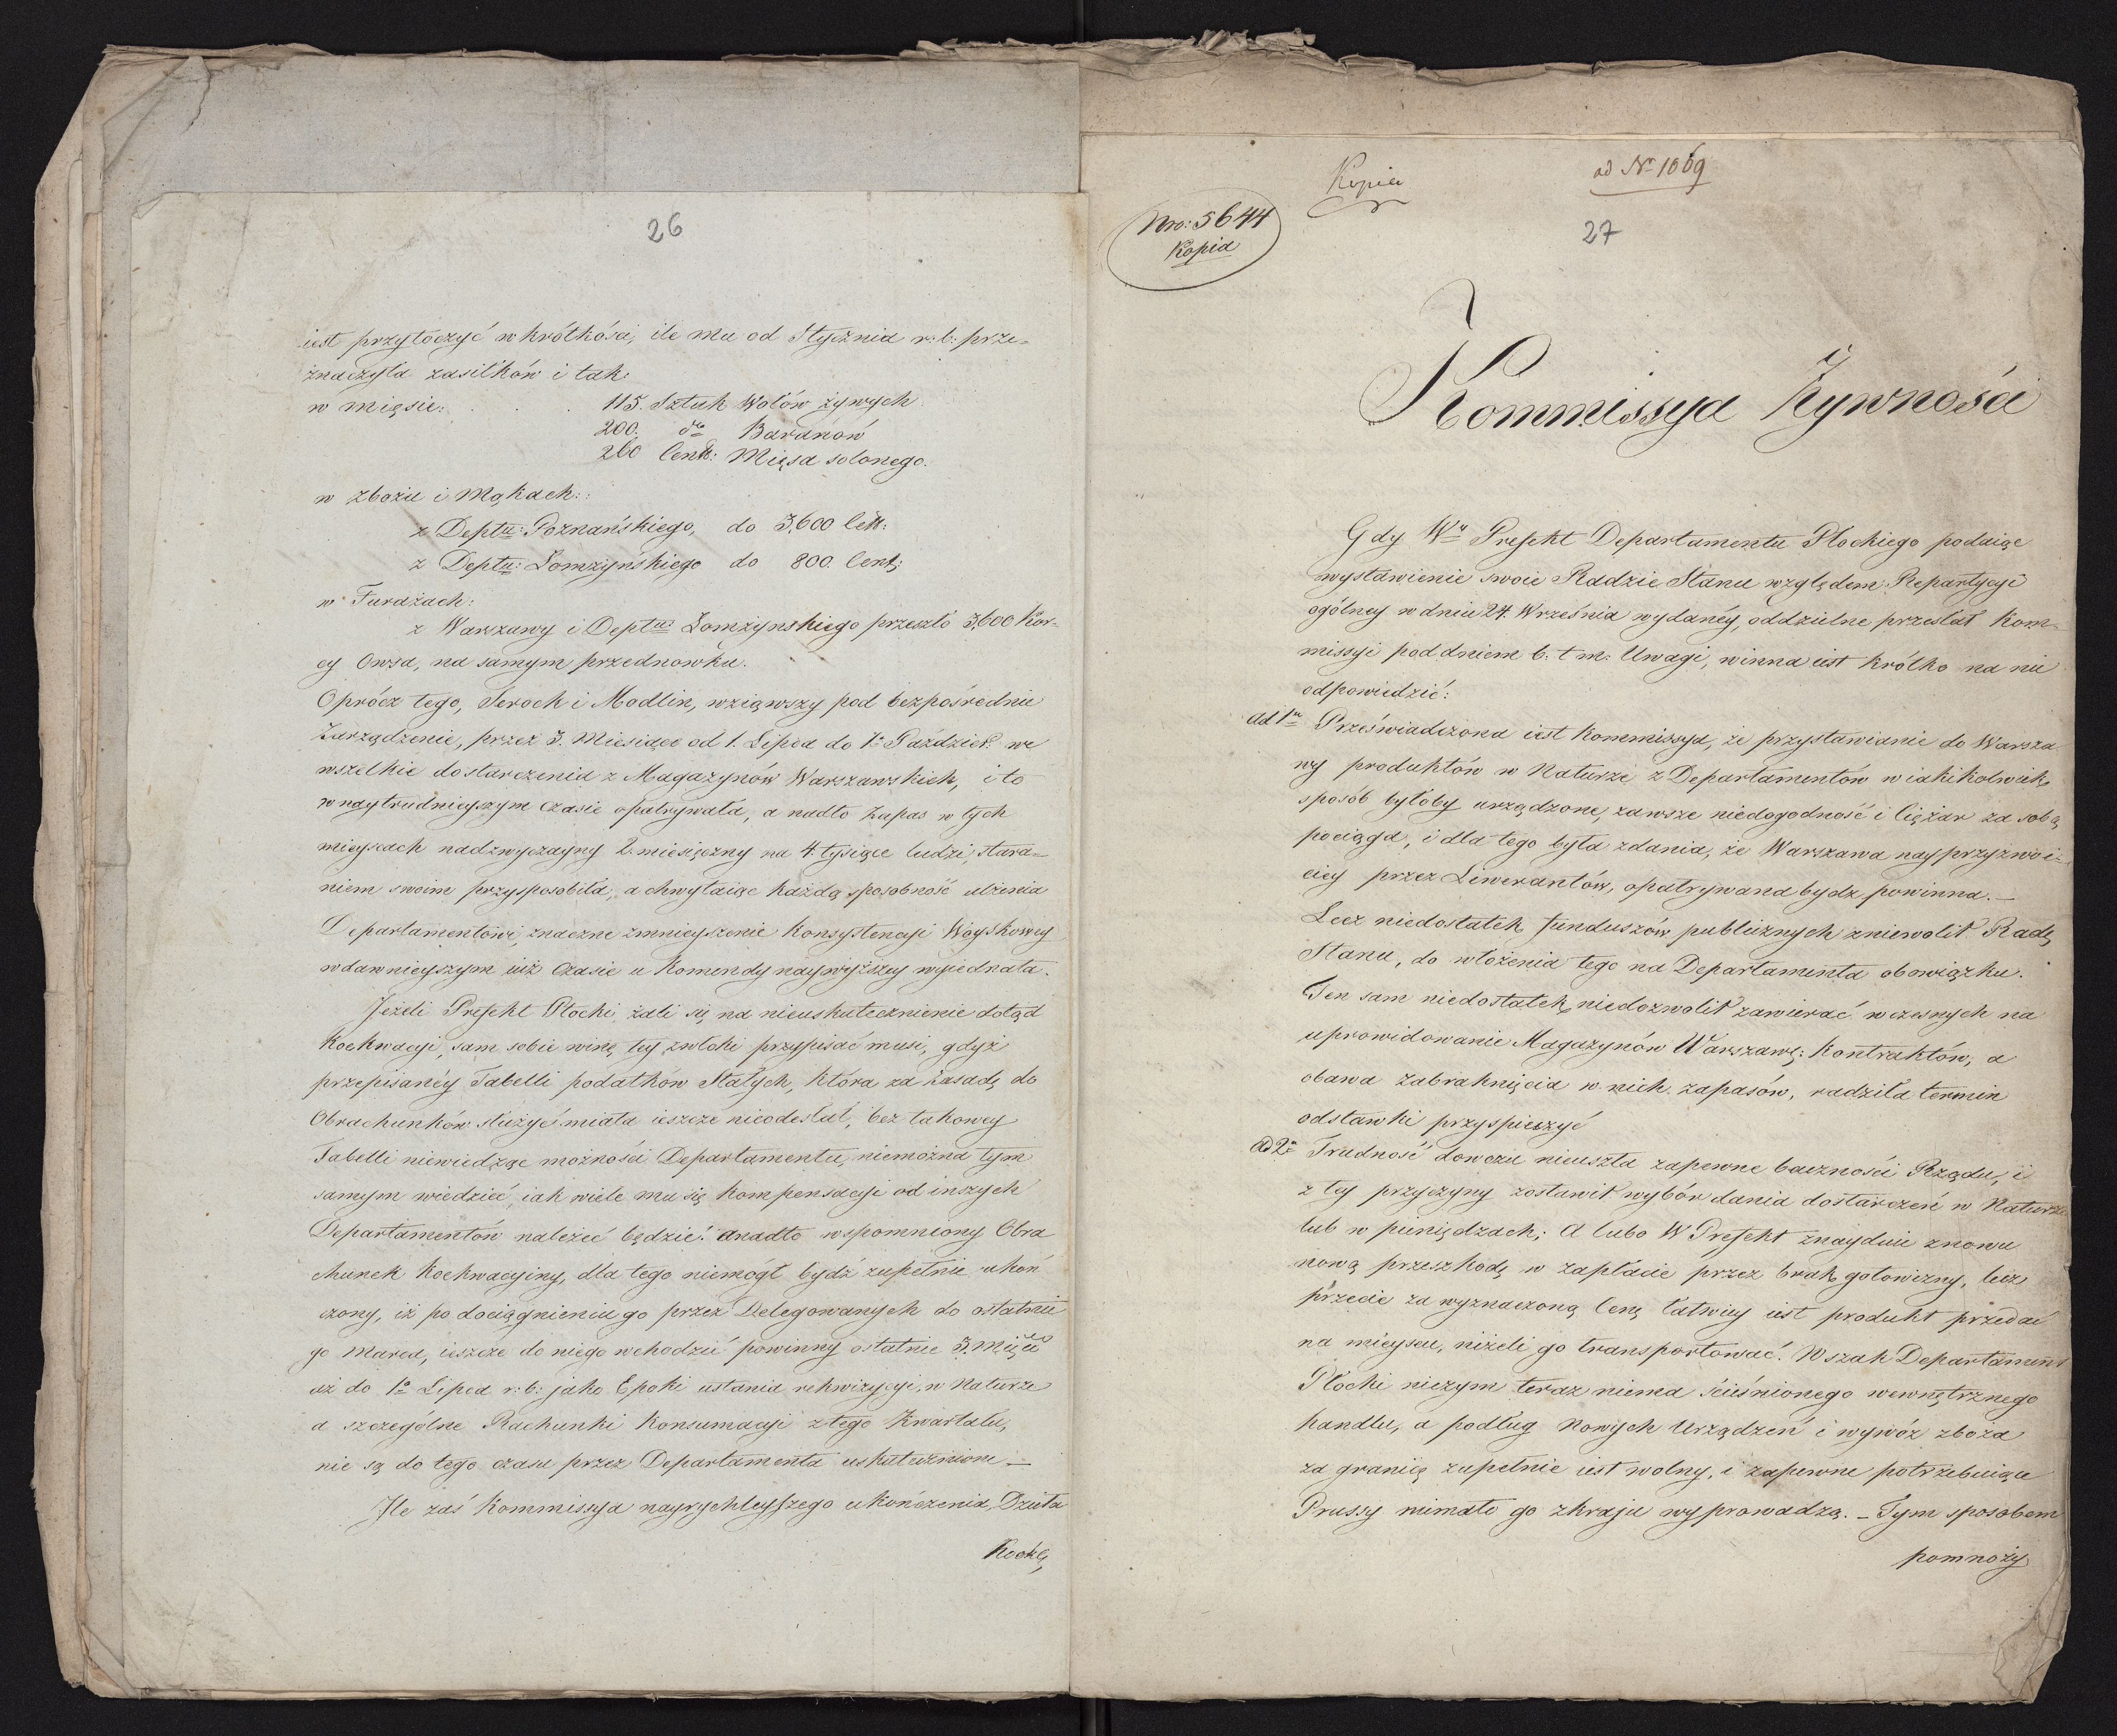 26
iest przytoczyć w krótkości, ile mu od Stycznia r: b: prze=
znaczyła zasiłków i tak:
w mięsie: . . . 115. Sztuk Wołów żywych
200. dto Baranów
260 Centr: Mięsa solonego.
w zbożu i Mąkach::
z Deptu: Poznańskiego, do 3,600 Cent:
z Deptu: Łomżyńskiego do 800. Cent;
w Furażach:
z Warszawy i Deptu Łomżynskiego przeszło 3,600 Kor=
cy Owsa, na samym przednowku.
Oprócz tego, Serock i Modlin, wziąwszy pod bezpośrednie
Zarządzenie, przez 3. Miesiące od 1. Lipca do 1o Paździer: we
wszelkie dostarczenia z Magazynów Warszawskich, i to
w naytrudnieyszym czasie opatrywała, a nadto Zapas w tych
mieyscach nadzwyczayny 2. miesięczny na 4. tysiące ludzi, stara=
niem swoim przysposobiła, a chwytaiąc każdą sposobność ulżenia
Departamentowi, znaczne zmnieyszenie Konsystencyi Woyskowey
w dawnieyszym iuż czasie u Komendy naywyższey wyiednała.
Jeżeli Prefekt Płocki żali się na nieuskutecznienie dotąd
Koekwacyi, sam sobie winę tey zwłoki przypisać musi, gdyż
przepisanéy Tabelli podatków Stałych, która za zasadę do
Obrachunków służyć miała ieszcze nieodesłał, bez takowey
Tabelli niewiedząc możności Departamentu, niemożna tym
samym wiedzieć, iak wiele mu się kompensacyi od inszych
Departamentów należeć będzie: anadto wspomniony Obra
chunek Koekwacyiny, dla tego niemógł bydź zupełnie ukoń
czony, iż po dociągnieniu go przez Delegowanych do ostatnie
go Marca, ieszcze do niego wchodzić powinny ostatnie 3. Miece
aż do 1o Lipca r: b: jako Epoki ustania rekwizycyi, w Naturze
a szczególne Rachunki Konsumacyi z tego Kwartału,
nie są do tego czasu przez Departamenta uskutecznione —
Ile zaś Kommissya nayrychleyszego ukończenia, Dzieła
Koekę,
Kopia
ad Nr 1069
Nro: 5644
Kopia
27
Kommissya Żywności
Gdy Wy Prefekt Departamentu Płockiego podaiąc
wystawienie swoie Radzie Stanu względem Repartycyi
ogólney w dniu 24. Września wydanéy, oddzielne przesłał Kom=
missyi pod dniem 6. t m: Uwagi, winna iest krótko na nie
odpowiedzić:
ad 1m Przeświadczona iest Kommissya, że przystawianie do Warsza
wy produktów w Naturze z Departamentów w iakikolwiek
sposób byłoby urządzone, zawsze niedogodność i Ciężar za sobą
pociąga, i dla tego była zdania, że Warszawa nayprzyzwoi=
ciey przez Liwerantów, opatrywana bydź powinna. —
Lecz niedostatek funduszów publicznych zniewolił Radę
Stanu, do włożenia tego na Departamenta obowiązku.
Ten sam niedostatek, niedozwolił zawierać wczesnych na
uprowidowanie Magazynów Warszawę: Kontraktów, a
obawa zabraknięcia w nich zapasów, radziła termin
odstawki przyspieszyć
ad 2o Trudność dowozu nieuszła zapewne baczności Rządu, i
z tey przyczyny zostawił wybór dania dostarczeń w Naturze
lub w pieniędzach; A lubo W Prefekt znayduie znowu
nową przeszkodę w zapłacie przez brak gotowizny, lecz
przecie za wyznaczoną Cenę łatwiey iest produkt przedać
na mieyscu, niżeli go transportować. Wszak Departament
Płocki niczym teraz niema ścieśnionego wewnętrznego
handlu, a podług Nowych Urządzeń i wywóz zboża
za granicę zupełnie iest wolny, i zapewne potrzebuiące
Prussy niemało go zkraju wyprowadzą. — Tym sposobem
pomnoży